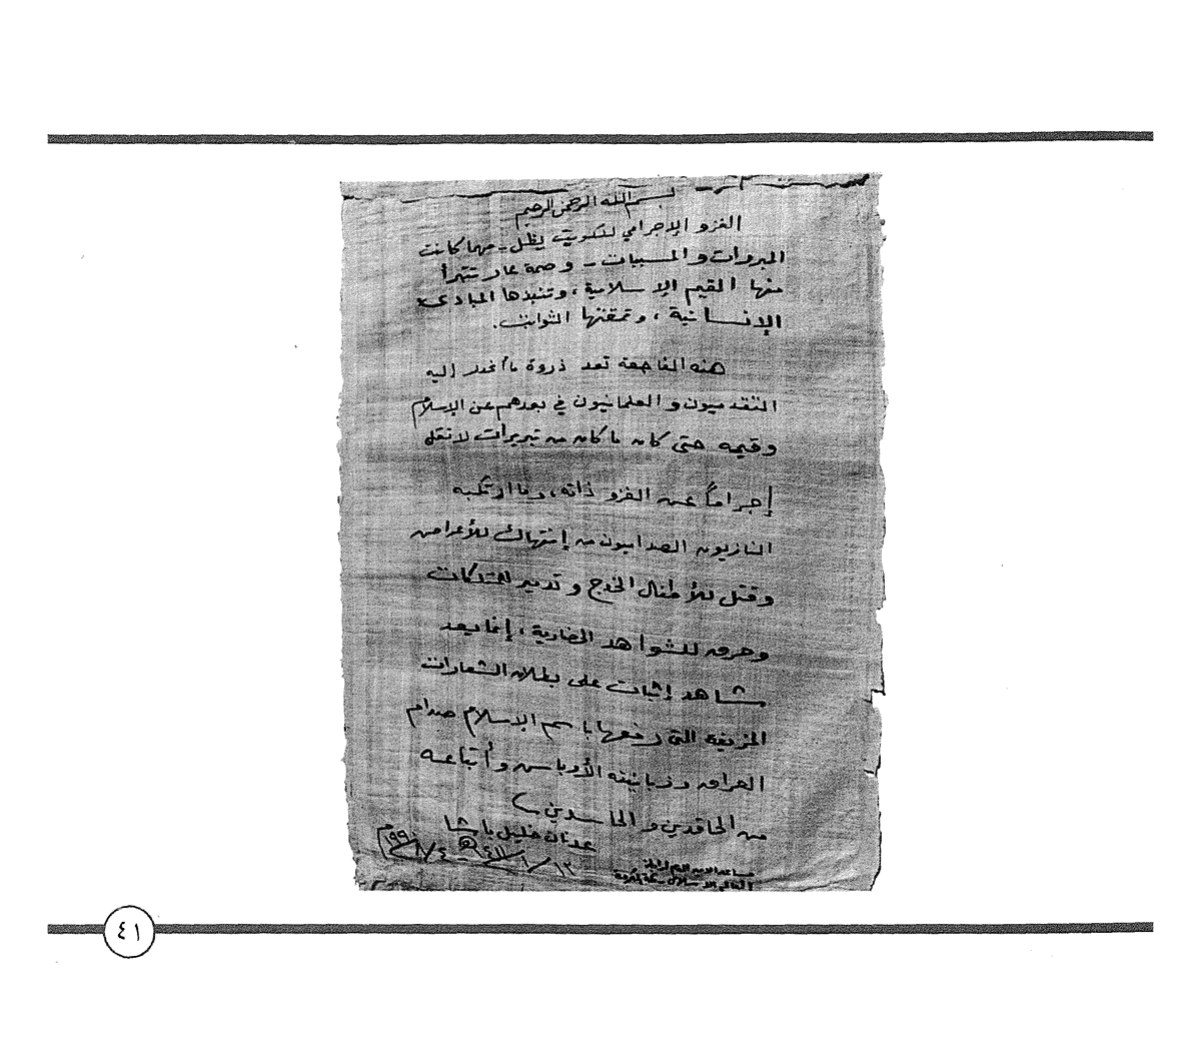 بسم الله الرحمن الرحيم
الغزو الإجرامي للكويت يظل - مهما كانت
المبررات والمسببات - وصمة عار تتبرأ
منها القيم الإسلامية، وتنبذها المبادئ
الإنسانية، وتمقتها الثوابت.
هذه الفاجعة تعد ذروة ما انحدر إليه
التقدميون والعلمانيون في بعدهم عن الإسلام
وقيمه حتى كان ما كان من تبريرات لا تقل
إجراماً عن الغزو ذاته، وما ارتكبه
النازيون الصداميون من إنتهاك للأعراض
وقتل للأطفال الخدج وتدمير للممتلكات
وحرق للشواهد الحضارية، إنما يعد
شاهد إثبات على بطلان الشعارات
المزيفة التي رفعها باسم الإسلام صدام
العراق وزبانيته الأوباش وأتباعه
من الحاقدين والحاسدين
عدنان خليل باشا
مساعد الأمين العام لرابطة
العالم الإسلامي - مكة المكرمة
٤١